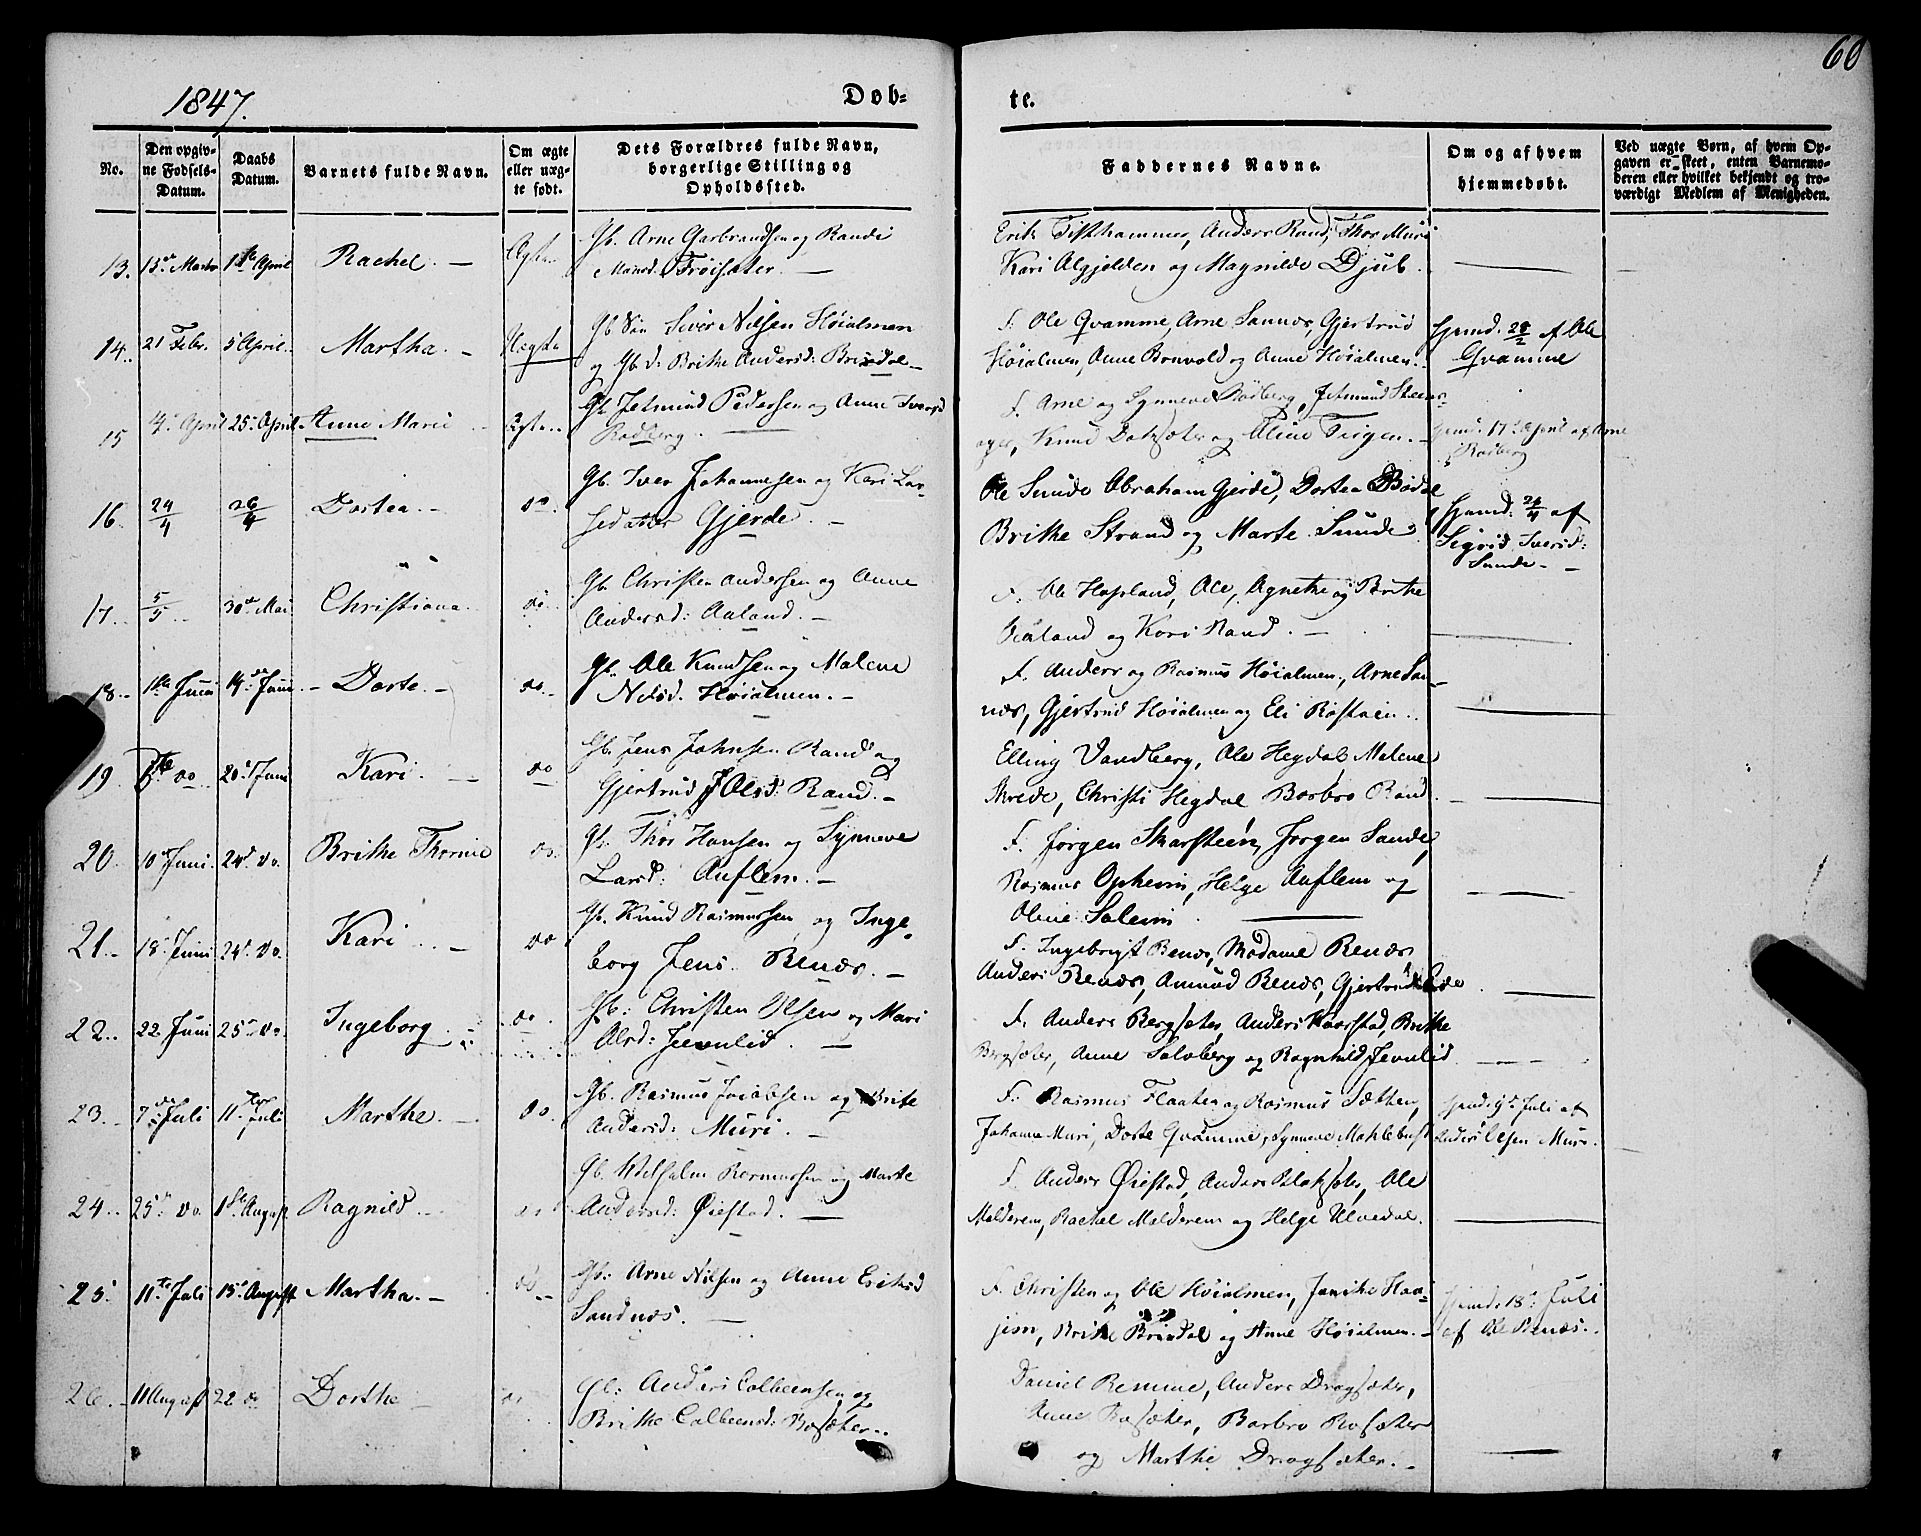 60
1847.
Døb-
te.
No.
Den opgiv-
ne Fødsels-
Datum.
Daabs
Datum.
Barnets fulde Navn.
Om ægte
eller uæg-
te født.
Dets Forældres fulde Navn,
borgerlige Stilling og
Opholdssted.
Faddernes Navne.
Om og af hvem
hjemmedøbt.
Ved uægte Børn, af hvem Op-
gaven er skeet, enten Barnemo-
deren eller hvilket bekjendt og tro-
værdigt Medlem af Menigheden.
13. 13de Marts April Rachel. Ægte Gb. Arne Garbrandsen og Randi
Frøisæter.
Erik Tisthammer, Anders Rand, Thor Muri
Kari og Magnilde Djub
14. 21 Febr. 5 April Martha. Uægte Gb Søn Siver Nilsen Høialmen
og Gbd: Brithe Andersd: Brindal
F. Ole Qvamme, Arne Sannæs, Gjertrud
Høialmen, Anne Brovold og Anne Høialmen.
Hjemd. 28/2 af Ole
Qvamme
15 4de April 25de April Anne Marie Ægte Gb. Jetmund Pedersen og Anne Iversd
Rødberg.
F. Arne og Synneve Rødberg, Jetmund
Knud og Oline Tisgen.
Hjemd. 17de April af Arne
Rødberg
16. 24/4 26/4 Dortea. do. Gb. Iver Johannesen og Kari Lar-
Gjerde.
Ole Sunde Abraham Gjerde, Dortea Bødal
Brithe Strand og Marte Sunde
Hjemd. 24/4 af
Sigrid Iversd:
Sunde
17. 5/5 30te Mai Christiana do. Gb. Christen Andersen og Anne
Andersd: Aaland.
F. Ole Hopland, Ole, Agnethe og Brithe
Aaland og Kari Rand.
18. Juni Juni Dorte. do. Gb. Ole Knudsen og Malene
Nilsd. Høialmen.
F. Anders og Rasmus Høialmen, Arne San-
næs, Gjertrud Høialmen og Eli
19. do. 20de Juni Kari. do Gb. Jens Johnsen Rand og
Gjertrud Olsd: Rand.
Elling Vandberg, Ole Hegdal Malene
Skrede, Christi Hegdal Barbro Rand.
20. 10de Juni 24de do. Brithe Thornie do. Gb. Thor Hansen og Synneve
Larsd: Auflem.
F. Jørgen Skarsteen, Jørgen Sande,
Rasmus Opheim, Helge Auflem og
Oline Solem
21. 18de Juni 24de do. Kari do Gb. Knud Rasmussen og Inge-
borg Jens. Renæs.
F. Ingebrigt Renæs, Madame Renæs
Anders Renæs, Amund Renæs, Gjertrud
22. 22. Juni 25de do. Ingeborg do. Gb: Christen Olsen og Mari
Olsd: Jevnlid.
F. Anders Bergsæter, Anders Kaarstad, Brithe
Bergsæter, Anne Solvberg og Ragnhild Jevnlid
23. 7de Juli 11te Juli Marthe do Gb. Rasmus Jacobsen og Brite
Andersd: Muri.
F: Rasmus Flaaten og Rasmus Sætten,
Johanne Muri, Dorte Qvamme, Synneve
Hjemd. 9de Juli af
Anders Olsen Muri.
24. 25de do. 1ste August Ragnild Gb. Wilhelm Rasmussen og Marte
Andersd: Øiestad.
F. Anders Øiestad, Anders Blaksæter, Ole
Melderem, Rachel Melderem og Helge Ulvedal.
25. 11te Juli 15de August Martha. do. Gb: Arne Nilsen og Anne Eriksd
Sandnæs.
F. Christen og Ole Høialmen, Janike Haa-
jem, Brithe Brindal og Anne Høialmen.
Hjemd. 18de Juli
af Ole Renæs.
26. 11 August 22 do Dorthe Gb: Anders Colbeensen og
Brithe Colbeensd: Rosæter..
Daniel Remme, Anders Dragsæter,
Anne Rosæter, Barbro Rosæter
og Marthe Dragsæter.